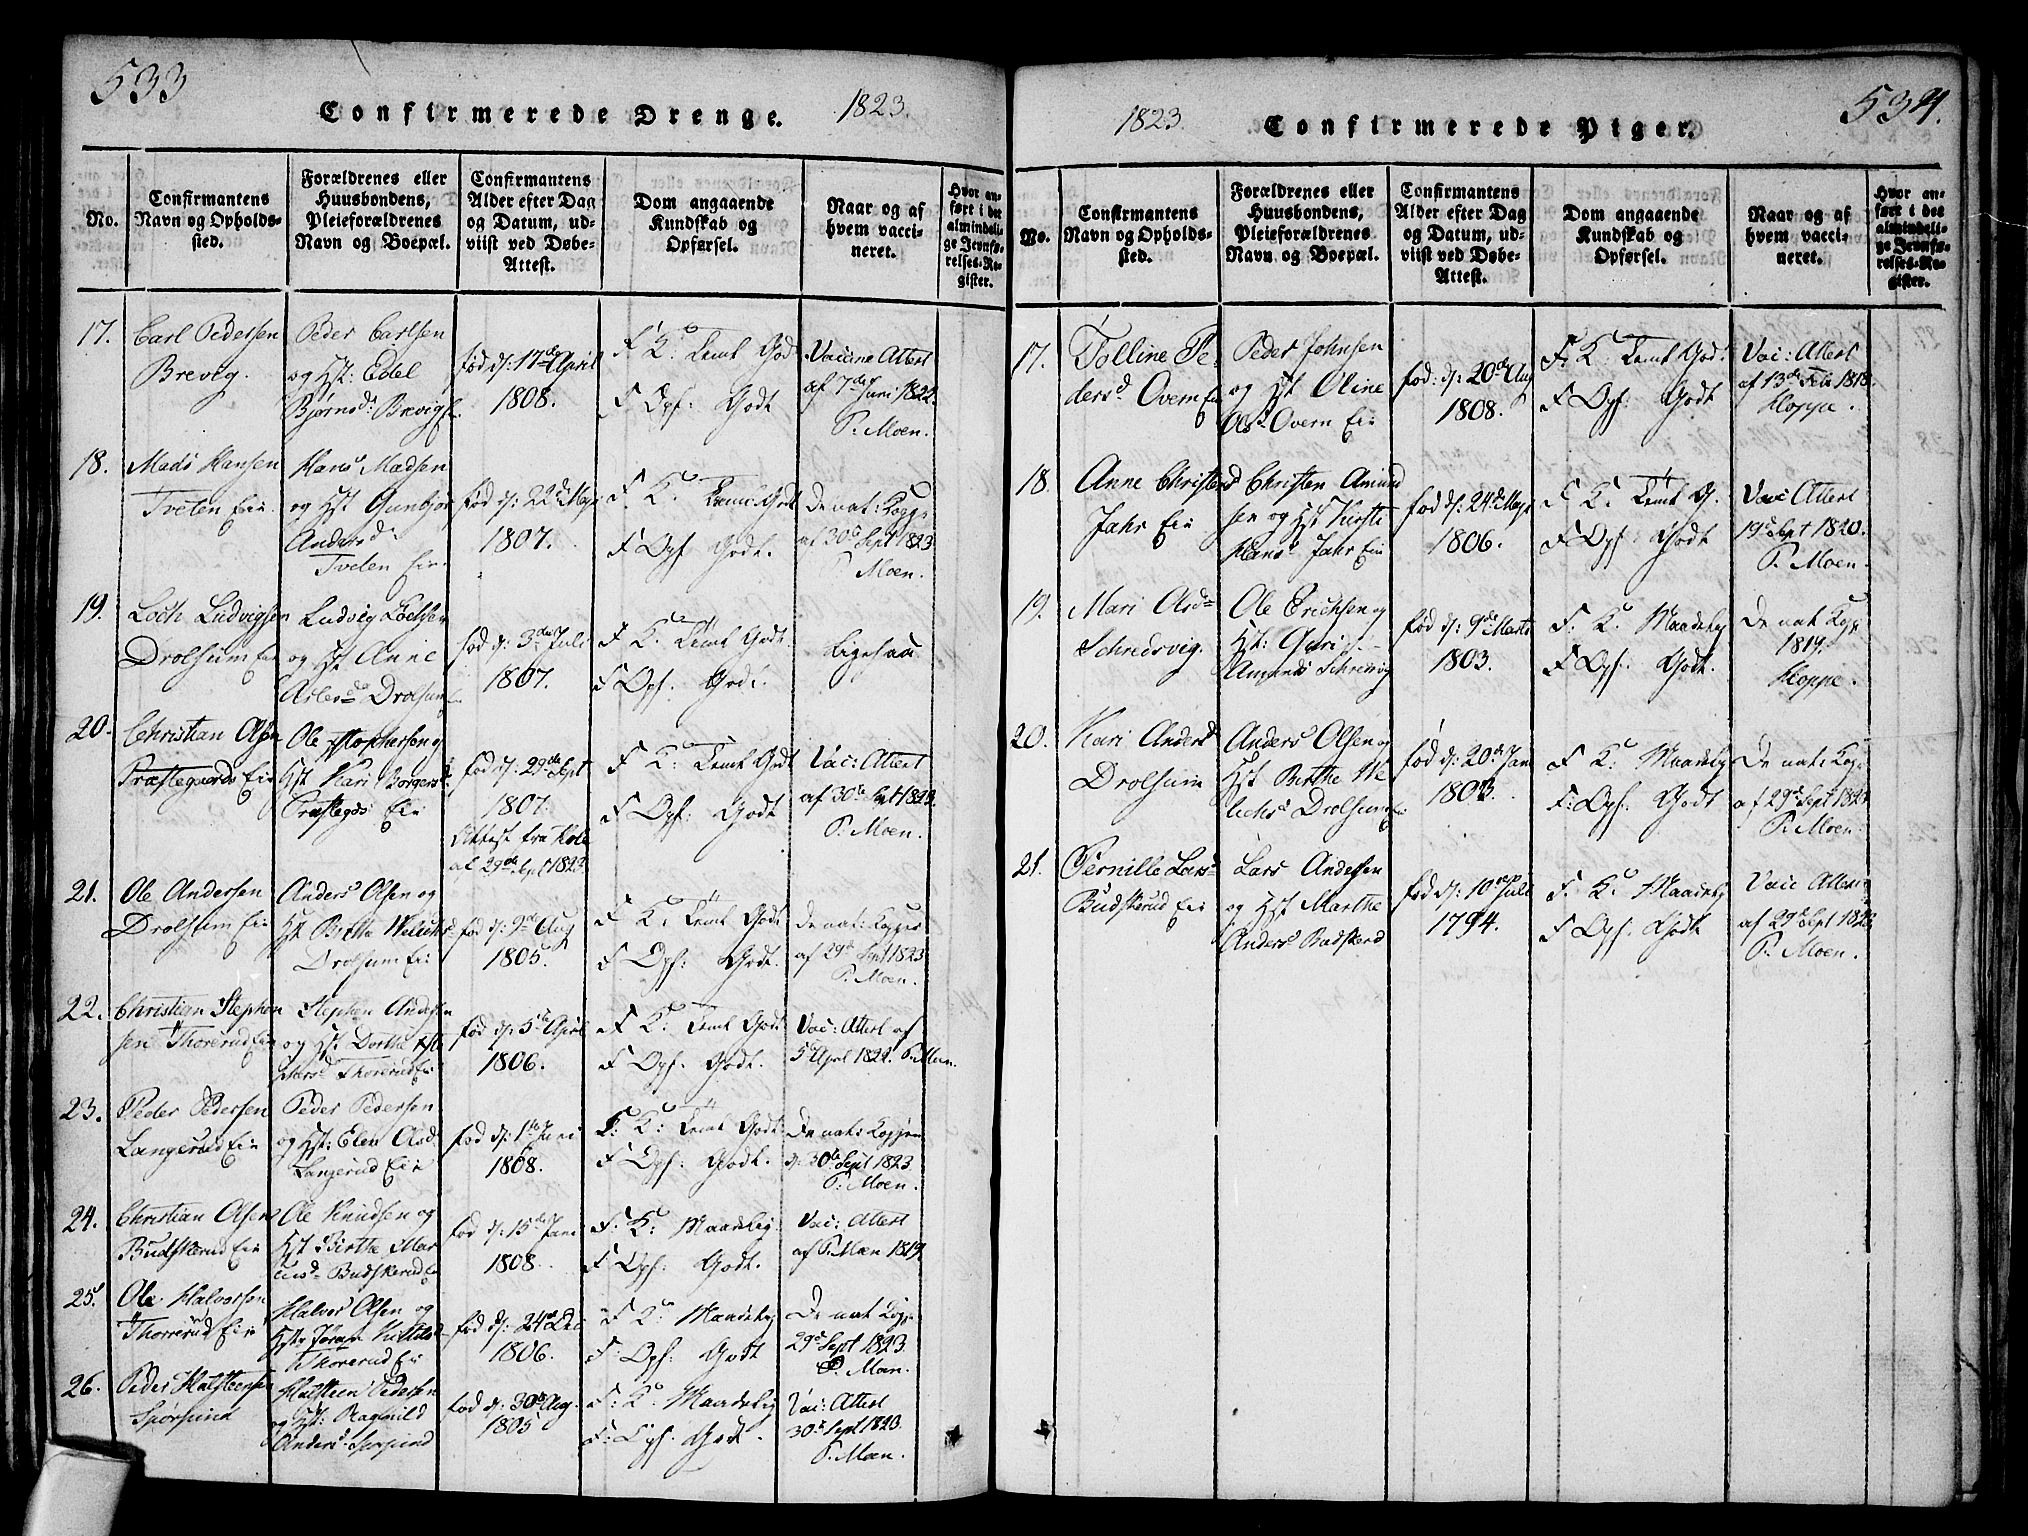 533
Confirmerede Drenge.
1823.
No.
Confirmantens
Navn og Opholds-
sted.
Forældrenes eller
Huusbondens,
Pleieforældrenes
Navn og Boepæl.
Confirmantens
Alder efter Dag
og Datum, ud-
viist ved Døbe-
Attest.
Dom angaaende
Kundskab og
Opførsel.
Naar og af
hvem vacci-
neret.
Hvor an-
ført i det
almindeli-
ge Jevnfø-
relses-Re-
gister.
17.
Carl Pedersen
Brevig.
Peder Carlsen
og Hst: Edel
Bjørnsd: Brevig
fød d: 17de April
1808.
F K: Temt Godt
F Opf: Godt
Vaccine Attest
af 7de Juni 1822.
P. Moen.
18.
Mads Hansen
Tveten Eie.
Hans Madsen
og Hst Gunbjør
Andersd:
Tveten Eie.
fød d: 22de May
1807.
F. K: Temt Godt
F Opf Godt.
De nat: Kopper
af 30te Sept 1823
P. Moen.
19.
Loch Ludvigsen
Drolsum Eie
Ludvig Lochsen
og Hst Anne
Drolsum
fød d: 3de Juli
1807.
F K: Temt Godt
F Opf. Godt.
Ligesaa
20.
Christian Olsen
Præstegaards Eie
Ole
Hst Kari Borgers
Præstegds Eie
fød d: 29de Sept
1807.
Attest fra
af 29de Sept 1823.
F K: Temt Godt
F Opf: Godt
Vac: Attest
af 30te Sept 1823.
P. Moen.
21.
Ole Andersen
Drolsum Eie
Anders Olsen og
Hst Birthe
Drolsum Eie
fød d: 9de Aug
1805.
F K: Temt Godt
F Opf: Godt.
De nat: Kopper
af 29de Sept 1823
P. Moen.
22.
Christian Stephen
sen Thorerud Eie
Stephen Andersen
og Hst Dorthe
Thorerud Eie
fød d: 5te April
1806.
F K: Temt Godt
F Opf: Godt.
Vac: Attest af
5te April 1822. P. Moen.
23.
Peder Pedersen
Langerud Eie
Peder Pedersen
og Hst: Elen Asd
Langerud Eie
fød d: 1te
1808.
F: K: Temt Godt
F Opf: Godt.
De nat: Kopper
d: 30te Sept 1823.
P. Moen.
24.
Christian Olsen
Budskerud Eie
Ole Knudsen og
Hst Birthe Mar
Budskerud Eie
fød d: 15de Jani
1808.
F. K: Maadelig
F Opf: Godt.
Vac: Attest
af P. Moen 1819.
25.
Ole Halvorsen
Thorrerud Eie
Halvor Olsen og
Hst:
Thorerud Eie
fød d: 24de Dec
1806.
F K: Maadelig
F. Opf: Godt
De nat Kopp
29de Sept 1823.
P. Moen.
26.
Peder Halsteensen
Halsteen Pedersen
og Hst: Ragnild
Andersd:
fød d: 30te Aug.
1805
F. K: Maadelig
F: Opf: Godt.
Vac: Attest
30te Sept 1823.
P. Moen.
1823.
Confirmerede Piger.
534.
No.
Confirmantens
Navn og Opholds-
sted.
Forældrenes eller
Huusbondens,
Pleieforældrenes
Navn og Boepæl.
Confirmantens
Alder efter Dag
og Datum, ud-
viist ved Døbe-
Attest.
Dom angaaende
Kundskab og
Opførsel.
Naar og af
hvem vacci-
neret.
Hvor an-
ført i det
almindeli-
ge Jevnfø-
relses-Re-
gister.
17.
Tolline Pe-
dersd Overn Eie
Peder Johnsen
og Hst Oline
Olsd Overn Eie
fød: d: 20de Aug
1808.
F. K Temt Godt
F Opf: Godt
Vac: Attest
af 13de Feb 1818.
Hoppe.
18.
Anne Christensd
Jahr Eie
Christen Amund
sen og Hst Kirsti
Hansd Jahr Eie
fød d: 24de May
1806.
F K: Temt G.
F Opf: Godt
Vac Attest
19de Sept 1820.
P. Moen.
19.
Mari Olsd
Schredsvig.
Ole Erichsen og
Hst: Guri
Amunds Schredsvig
fød d: 9de Marts
1803.
F. K: Maadelig
F Opf: Godt.
De nat Kopp
1819.
Hoppe.
20.
Kari Andersd
Drolsum
Anders Olsen og
Hst Birthe We
Drolsum Eie
fød d: 20de Jan
1803.
F K: Maadelig
F: Opf: Godt
De nat: Kopp
af 29de Sept 1823
P. Moen.
21.
Pernille Larsd
Budskerud Eie
Lars Andersen
og Hst Marthe
Andersd Budskerud
fød d: 10de Juli
1794.
F. K: Maadelig
F Opf: Godt
Vac Attest
af 29de Sept 1823
P. Moen.